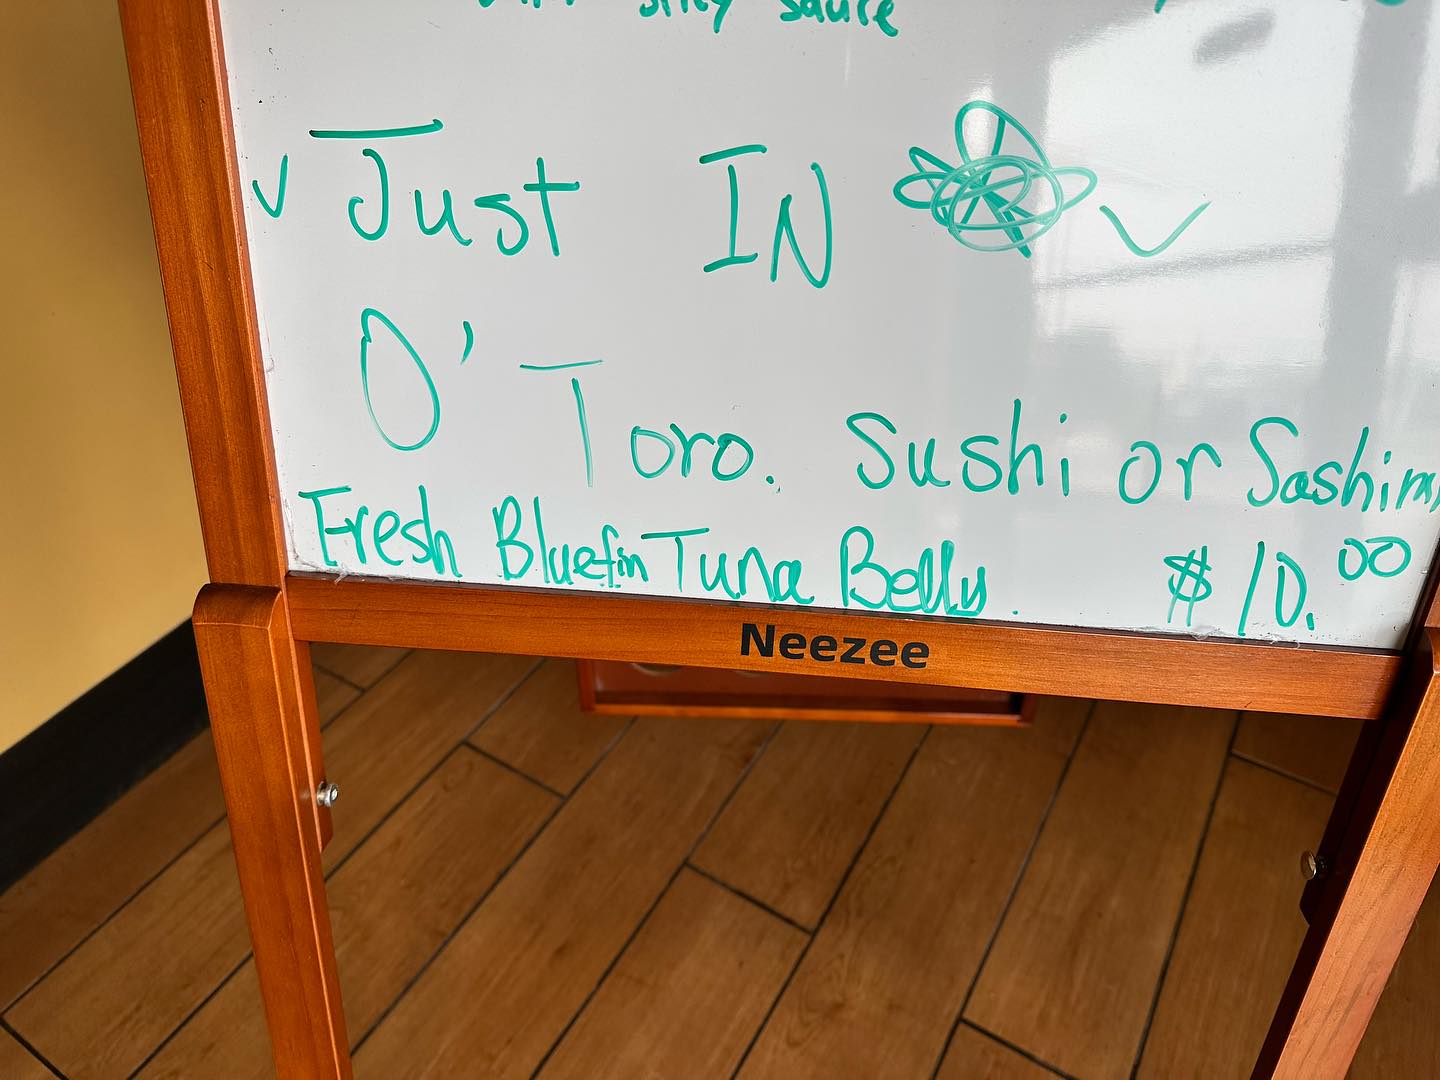 sauce
Just IN
O' Toro. Sushi or Sashimi
Fresh Bluefin Tuna Belly. $10.00
Neezee